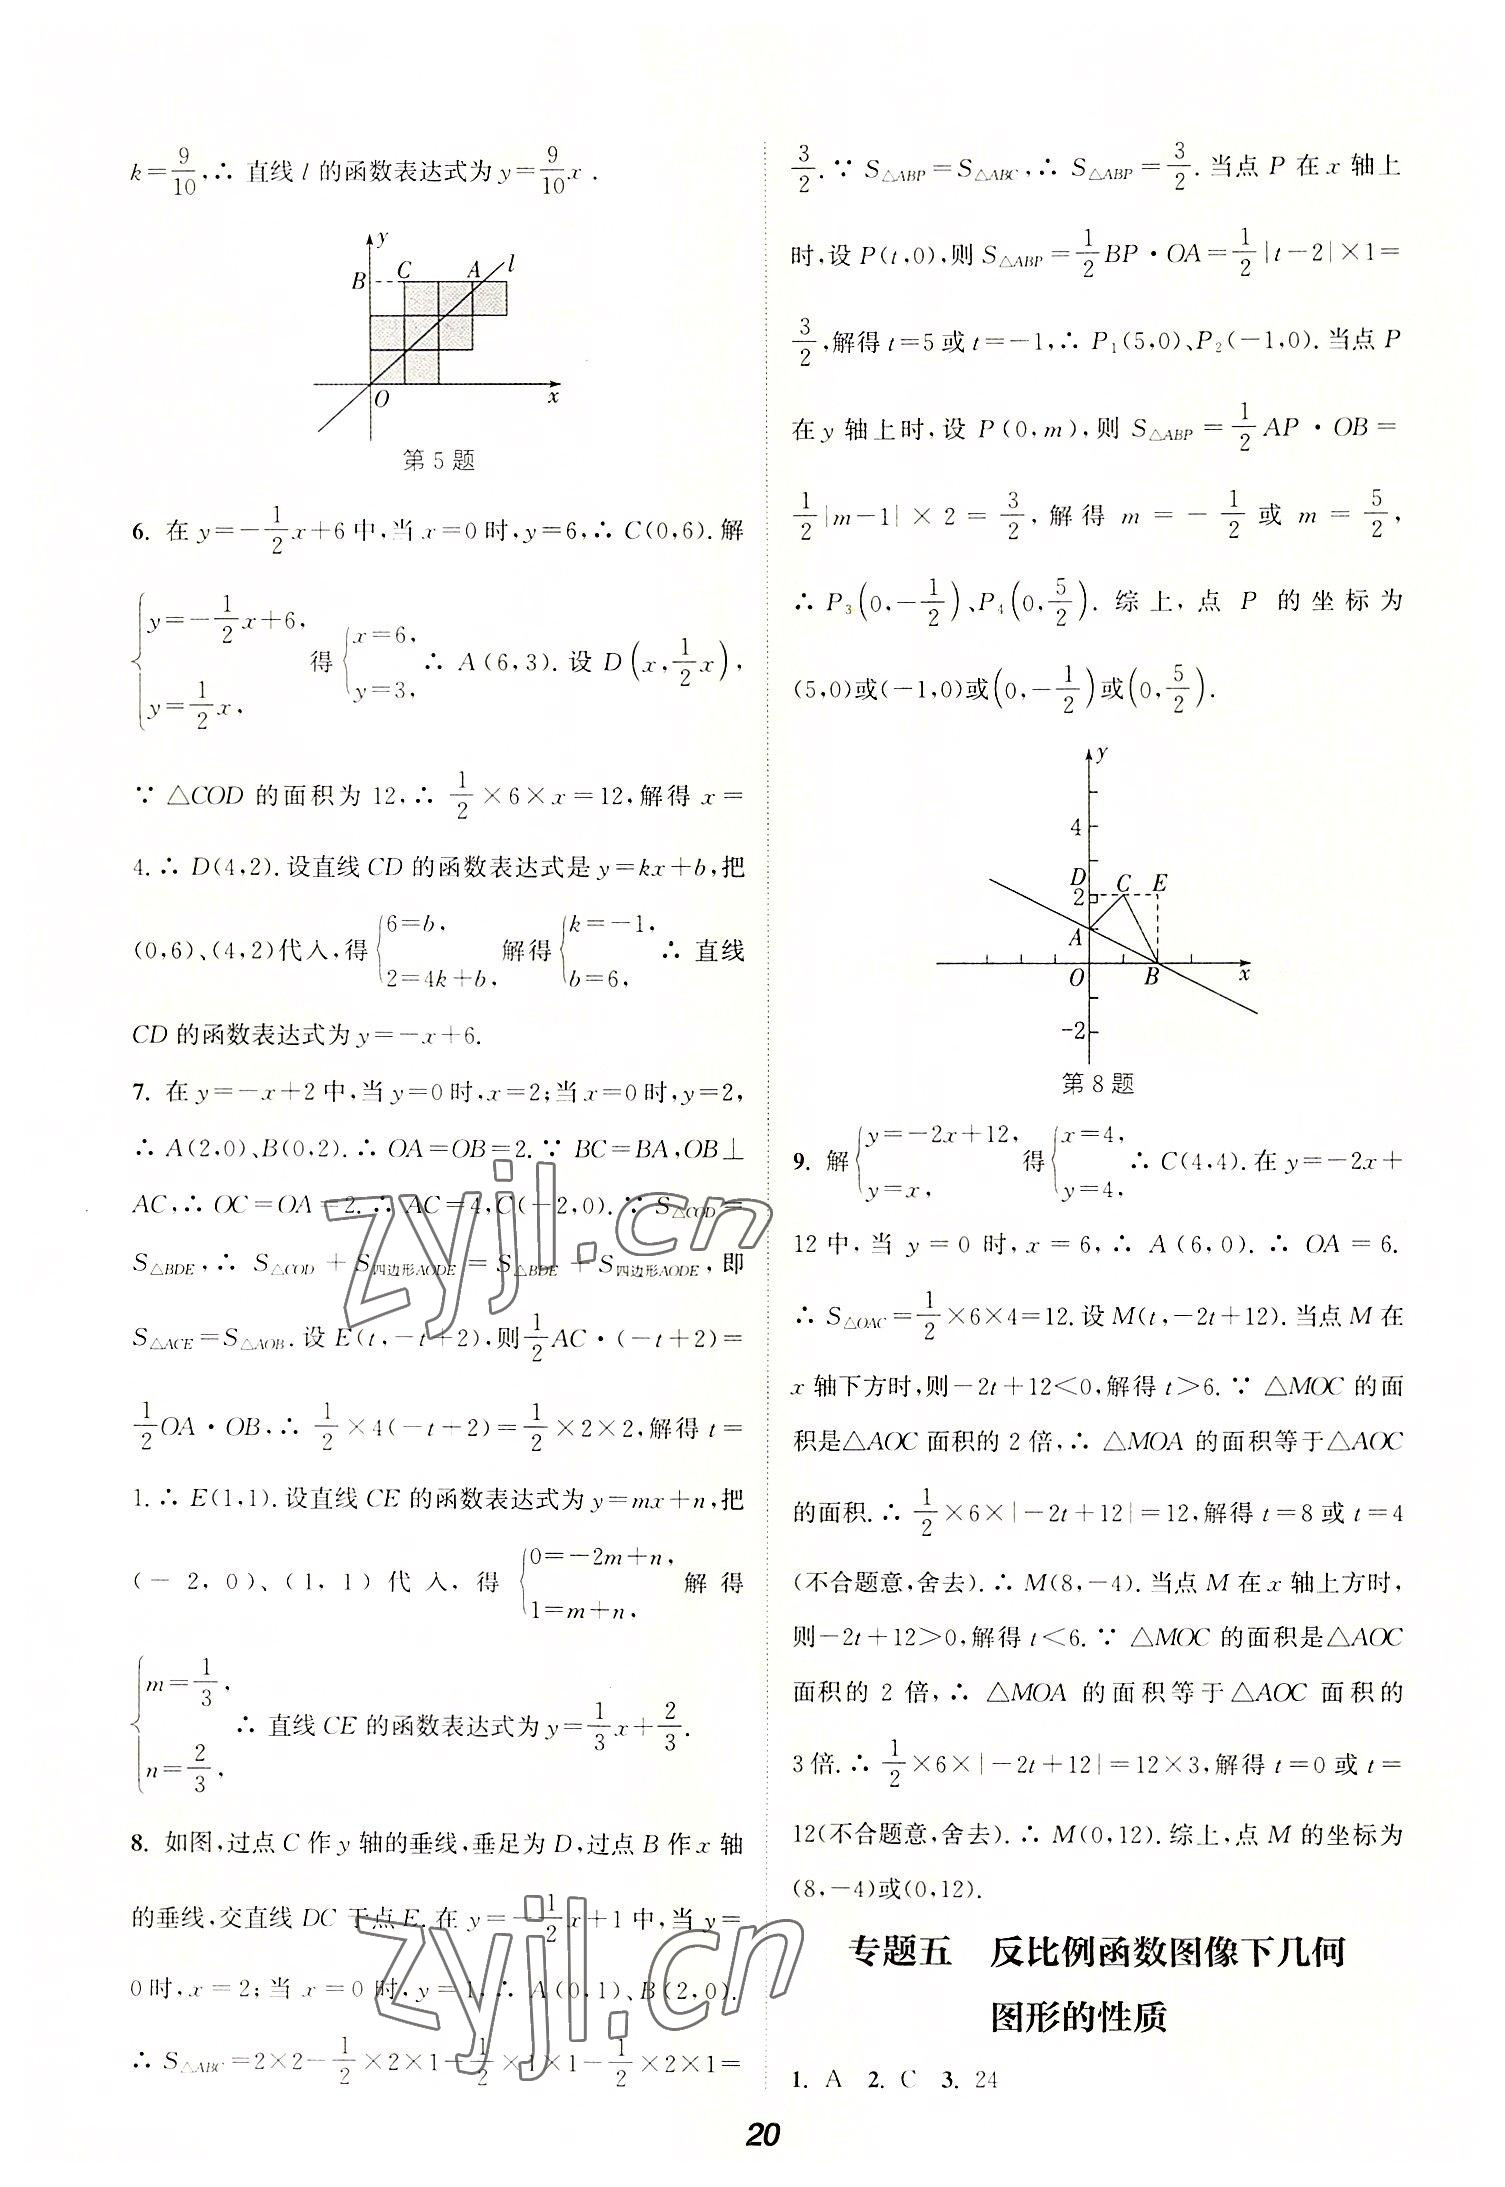 k=9/10,∴ 直线 l 的函数表达式为 y=9/10 x.
y
B C A l
O x
第 5 题
6. 在 y=-1/2 x+6 中,当 x=0 时,y=6,∴ C(0,6).解
{y=-1/2 x+6, y=1/2 x, 得 {x=6, y=3, ∴ A(6,3).设 D(x,1/2 x),
∵ △COD 的面积为 12,∴ 1/2×6×x=12,解得 x=
4.∴ D(4,2).设直线 CD 的函数表达式是 y=kx+b,把
(0,6)、(4,2)代入,得 {6=b, 2=4k+b, 解得 {k=-1, b=6, ∴ 直线
CD 的函数表达式为 y=-x+6.
7. 在 y=-x+2 中,当 y=0 时,x=2;当 x=0 时,y=2,
∴ A(2,0)、B(0,2).∴ OA=OB=2.∵ BC=BA,OB⊥
AC,∴ OC=OA=2.∴ AC=4,C(-2,0).∵ S△COD=
S△BDE,∴ S△COD+S四边形AODE=S△BDE+S四边形AODE,即
S△ACE=S△AOB.设 E(t,-t+2),则 1/2 AC·(-t+2)=
1/2 OA·OB,∴ 1/2×4(-t+2)=1/2×2×2,解得 t=
1.∴ E(1,1).设直线 CE 的函数表达式为 y=mx+n,把
(-2,0)、(1,1)代入,得 {0=-2m+n, 1=m+n, 解得
{m=1/3, n=2/3, ∴ 直线 CE 的函数表达式为 y=1/3 x+2/3.
8. 如图,过点 C 作 y 轴的垂线,垂足为 D,过点 B 作 x 轴
的垂线,交直线 DC 于点 E.在 y=-1/2 x+1 中,当 y=
0 时,x=2;当 x=0 时,y=1,∴ A(0,1)、B(2,0).
∴ S△ABC=2×2-1/2×2×1-1/2×1×1-1/2×2×1=
3/2.∵ S△ABP=S△ABC,∴ S△ABP=3/2.当点 P 在 x 轴上
时,设 P(t,0),则 S△ABP=1/2 BP·OA=1/2|t-2|×1=
3/2,解得 t=5 或 t=-1,∴ P₁(5,0)、P₂(-1,0).当点 P
在 y 轴上时,设 P(0,m),则 S△ABP=1/2 AP·OB=
1/2|m-1|×2=3/2,解得 m=-1/2 或 m=5/2,
∴ P₃(0,-1/2)、P₄(0,5/2).综上,点 P 的坐标为
(5,0)或(-1,0)或(0,-1/2)或(0,5/2).
y
4
D
2 C E
A
O B x
-2
第 8 题
9. 解 {y=-2x+12, y=x, 得 {x=4, y=4, ∴ C(4,4).在 y=-2x+
12 中,当 y=0 时,x=6,∴ A(6,0).∴ OA=6.
∴ S△OAC=1/2×6×4=12.设 M(t,-2t+12).当点 M 在
x 轴下方时,则-2t+12<0,解得 t>6.∵ △MOC 的面
积是△AOC 面积的 2 倍,∴ △MOA 的面积等于△AOC
的面积.∴ 1/2×6×|-2t+12|=12,解得 t=8 或 t=4
(不合题意,舍去).∴ M(8,-4).当点 M 在 x 轴上方时,
则-2t+12>0,解得 t<6.∵ △MOC 的面积是△AOC
面积的 2 倍,∴ △MOA 的面积等于△AOC 面积的
3 倍.∴ 1/2×6×|-2t+12|=12×3,解得 t=0 或 t=
12(不合题意,舍去).∴ M(0,12).综上,点 M 的坐标为
(8,-4)或(0,12).
专题五 反比例函数图像下几何
图形的性质
1. A 2. C 3. 24
20
zyjl.cn
zyjl.cn